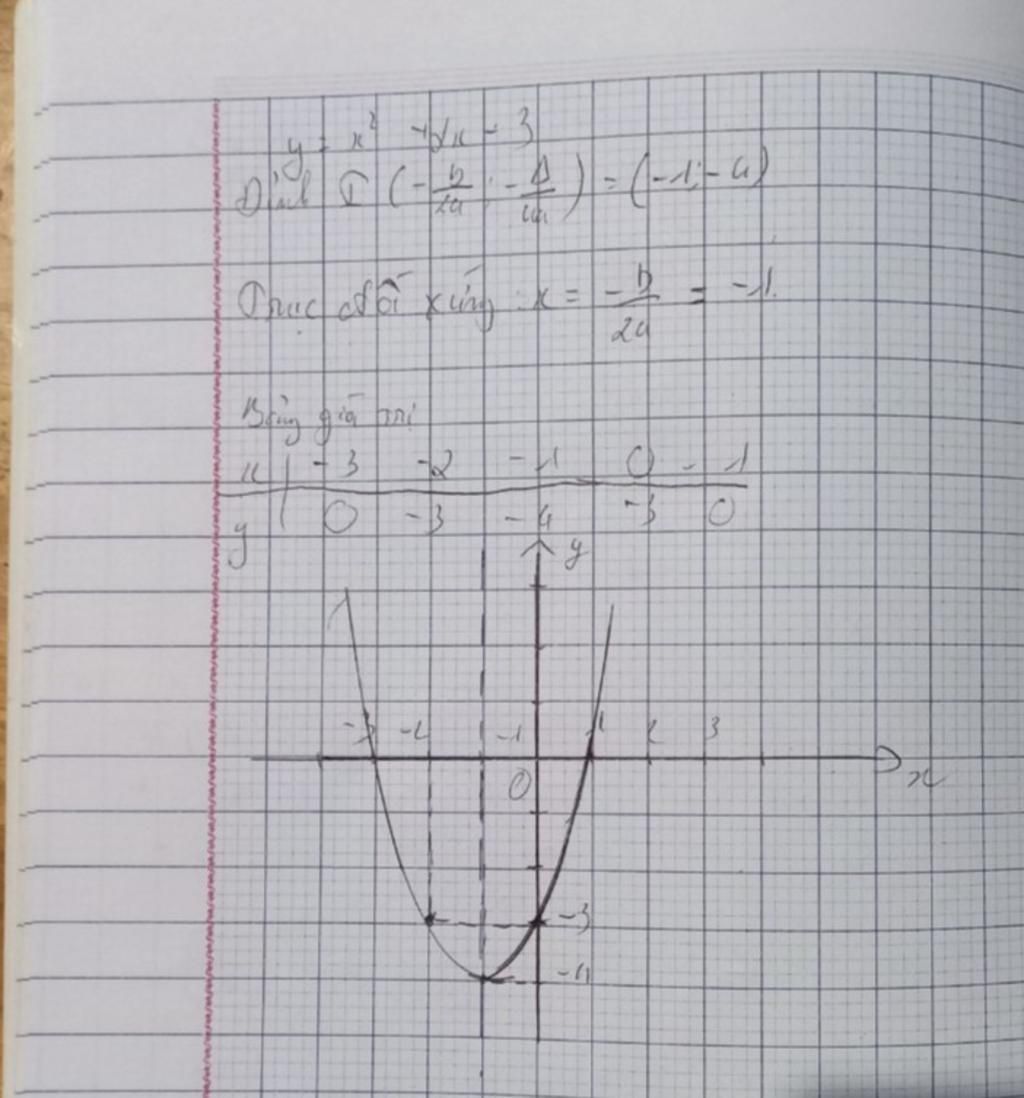 y = x² + 2x - 3
Đỉnh I (-b/2a ; -Δ/4a) = (-1; -4)
Trục đối xứng: x = -b/2a = -1.
Bảng giá trị
x | -3 -2 -1 0 1
y | 0 -3 -4 -3 0
y
-3 -2 -1 1 2 3
O x
-3
-4